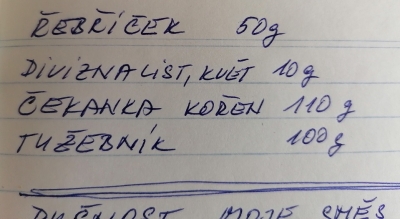 ŘEBŘÍČEK 50g
DIVIZNA LIST, KVĚT 10g
ČEKANKA KOŘEN 110 g
TUŽEBNÍK 100g
MOJE SMĚS